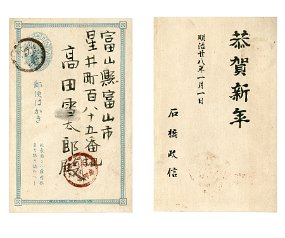 富山縣富山市
星井町百八十五番地
高田雪太郎殿
郵便はかき
恭賀新年
明治廿八年一月一日
石橋政信